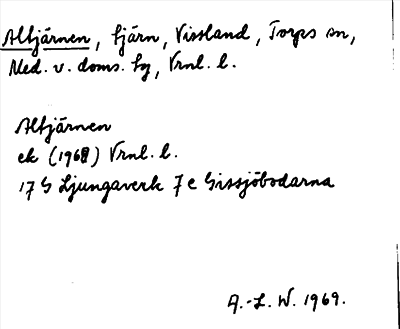 Altjärnen, tjärn, Vissland, Torps sn,
Med. v. doms. hg, Vrnl. l.
Altjärnen
ek (1961) Vrnl. l.
17 G Ljungaverk 7 c Gissjöbodarna
A.-L. W. 1969.